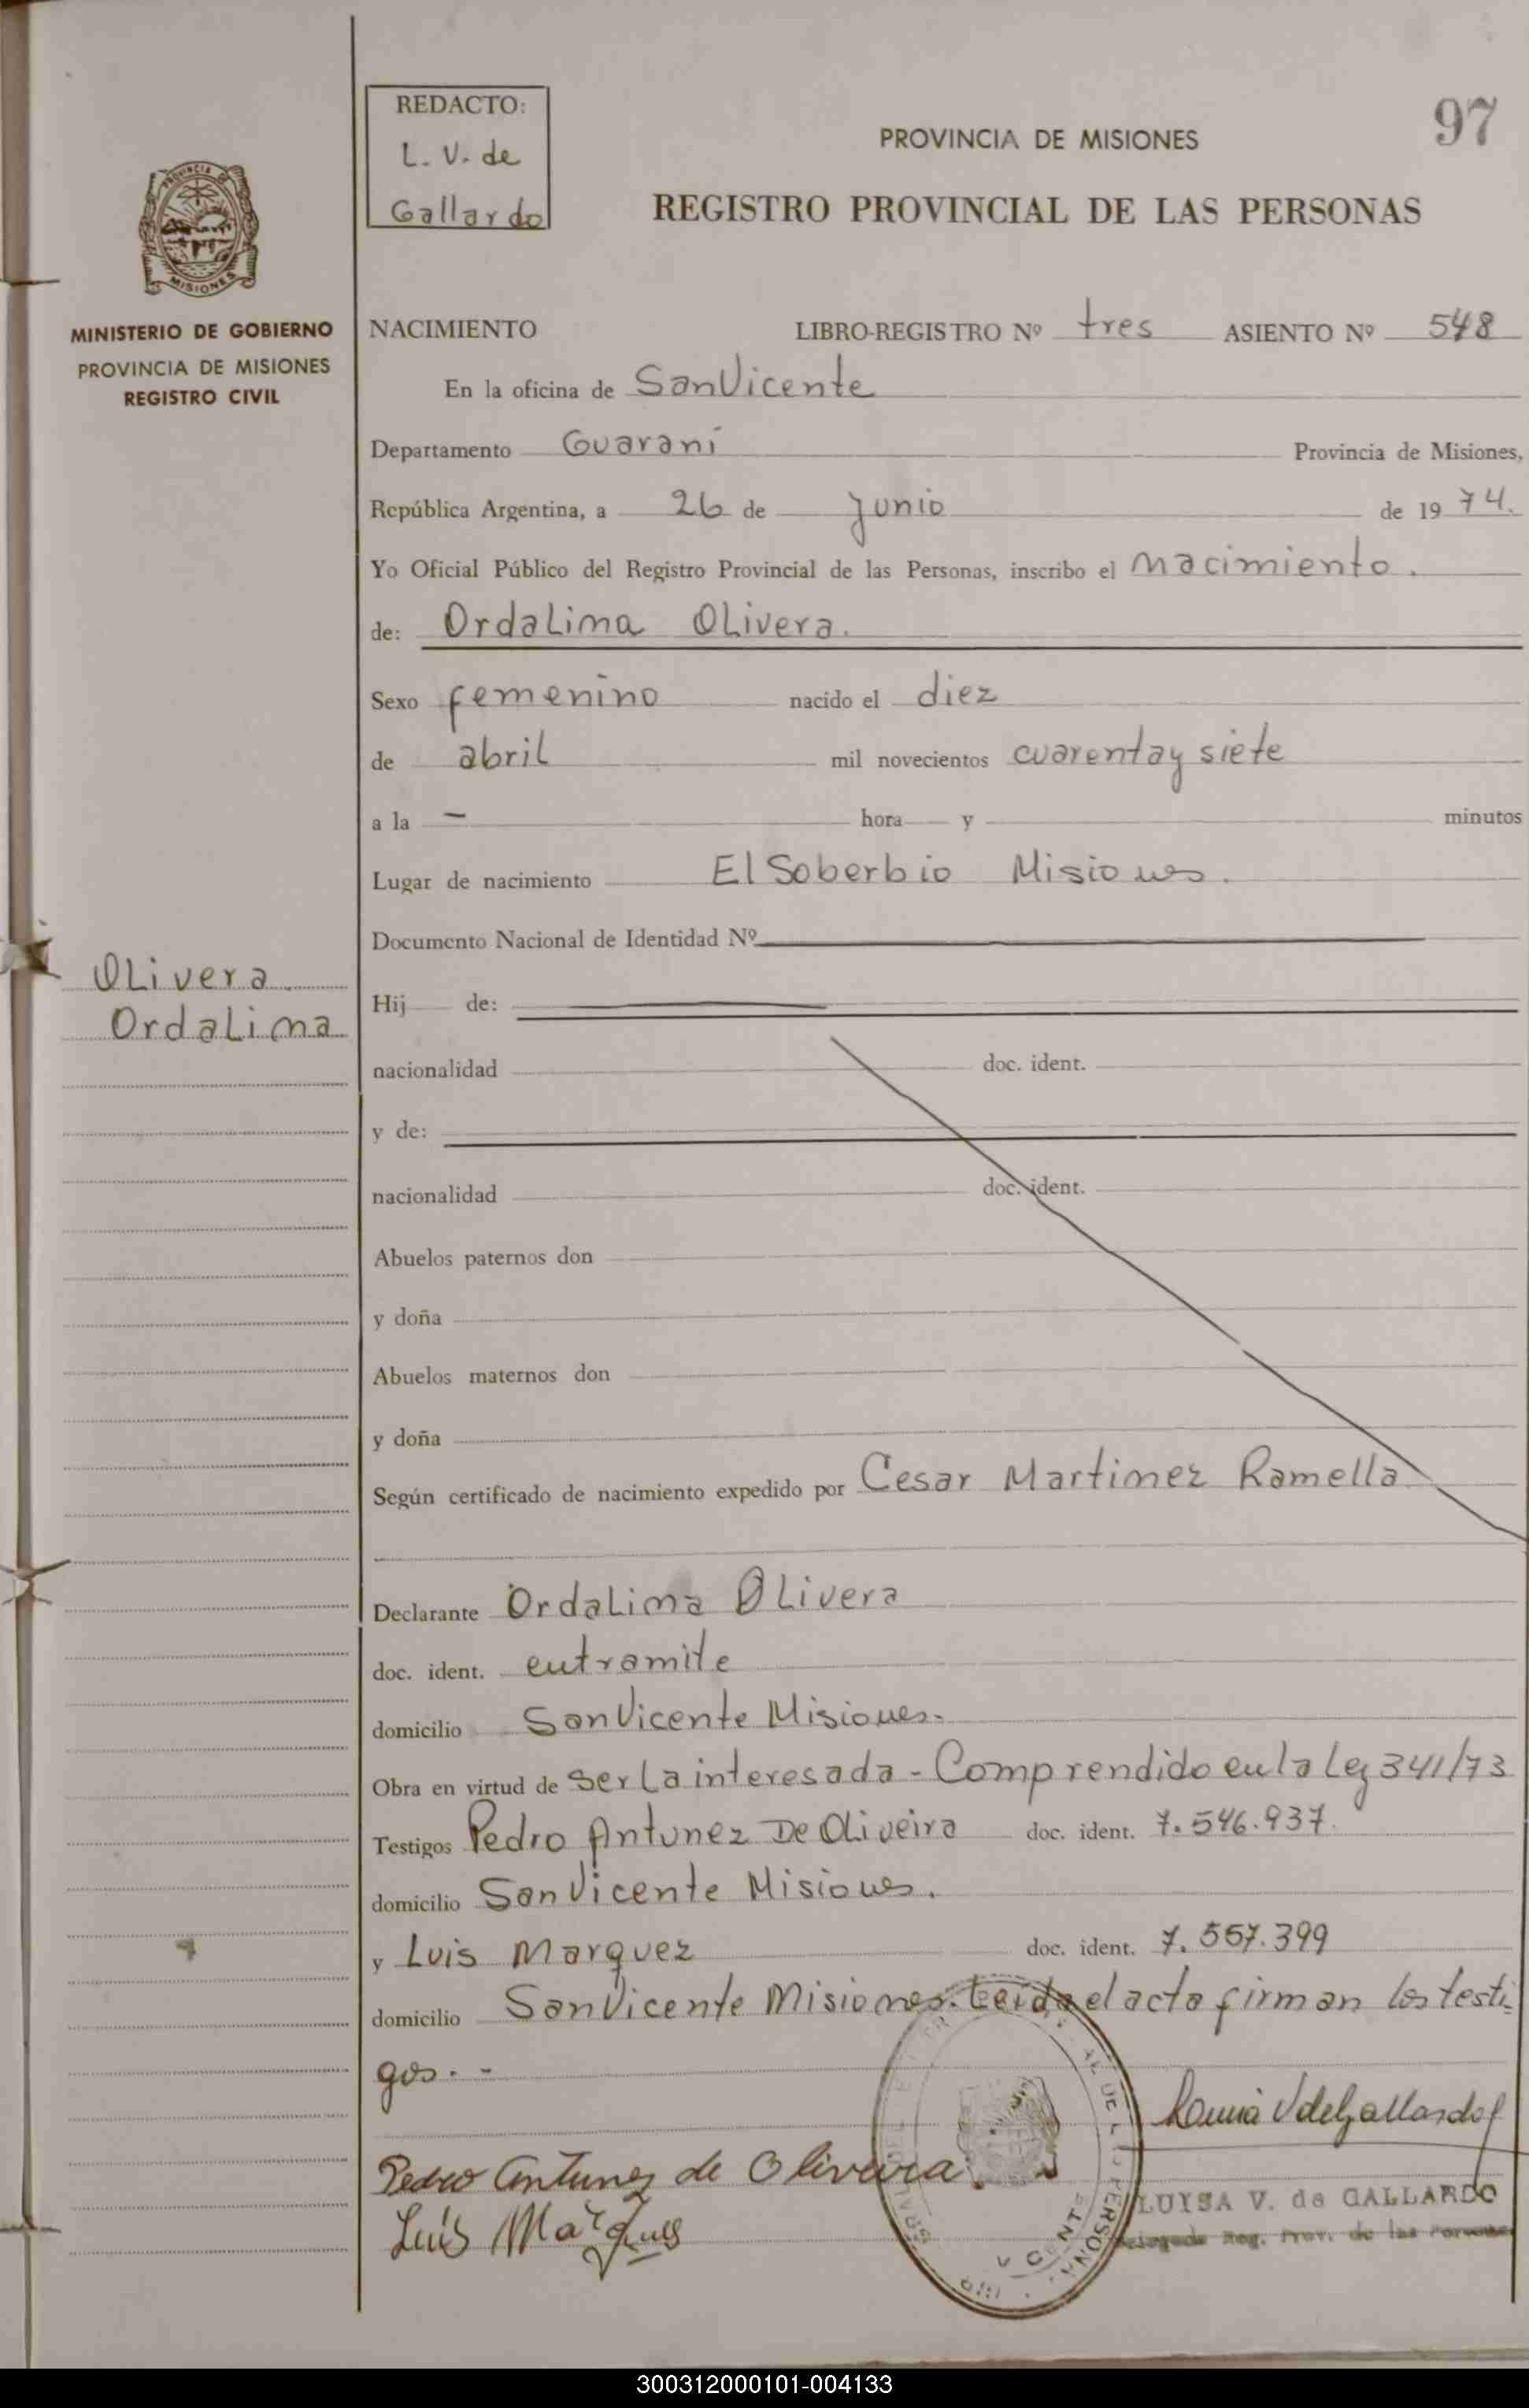 REDACTO:
L. V. de
Gallardo
PROVINCIA DE MISIONES
97
REGISTRO PROVINCIAL DE LAS PERSONAS
PROVINCIA DE
MISIONES
MINISTERIO DE GOBIERNO
PROVINCIA DE MISIONES
REGISTRO CIVIL
NACIMIENTO LIBRO-REGISTRO Nº tres ASIENTO Nº 548
En la oficina de San Vicente
Departamento Guaraní Provincia de Misiones,
República Argentina, a 26 de Junio de 1974.
Yo Oficial Público del Registro Provincial de las Personas, inscribo el Nacimiento.
de: OrdaLima OLivera.
Sexo femenino nacido el diez
de abril mil novecientos cuarentay siete
a la — hora y minutos
Lugar de nacimiento El Soberbio Misiones.
Documento Nacional de Identidad Nº
OLivera
OrdaLima
Hij de:
nacionalidad doc. ident.
y de:
nacionalidad doc. ident.
Abuelos paternos don
y doña
Abuelos maternos don
y doña
Según certificado de nacimiento expedido por Cesar Martinez Ramella
Declarante OrdaLima OLivera
doc. ident. entramite
domicilio San Vicente Misiones.
Obra en virtud de ser La interesada - Comprendido en la Ley 341/73
Testigos Pedro Antunez De Oliveira doc. ident. 7.546.937.
domicilio San Vicente Misiones.
y Luis Marquez doc. ident. 7.557.399
domicilio San Vicente Misiones. Leida el acta firman los testi-
gos. -
Pedro Antunes de Oliveira
Luis Marques
LUISA V. de GALLARDO
Delegada Reg. Prov. de las Personas
300312000101-004133